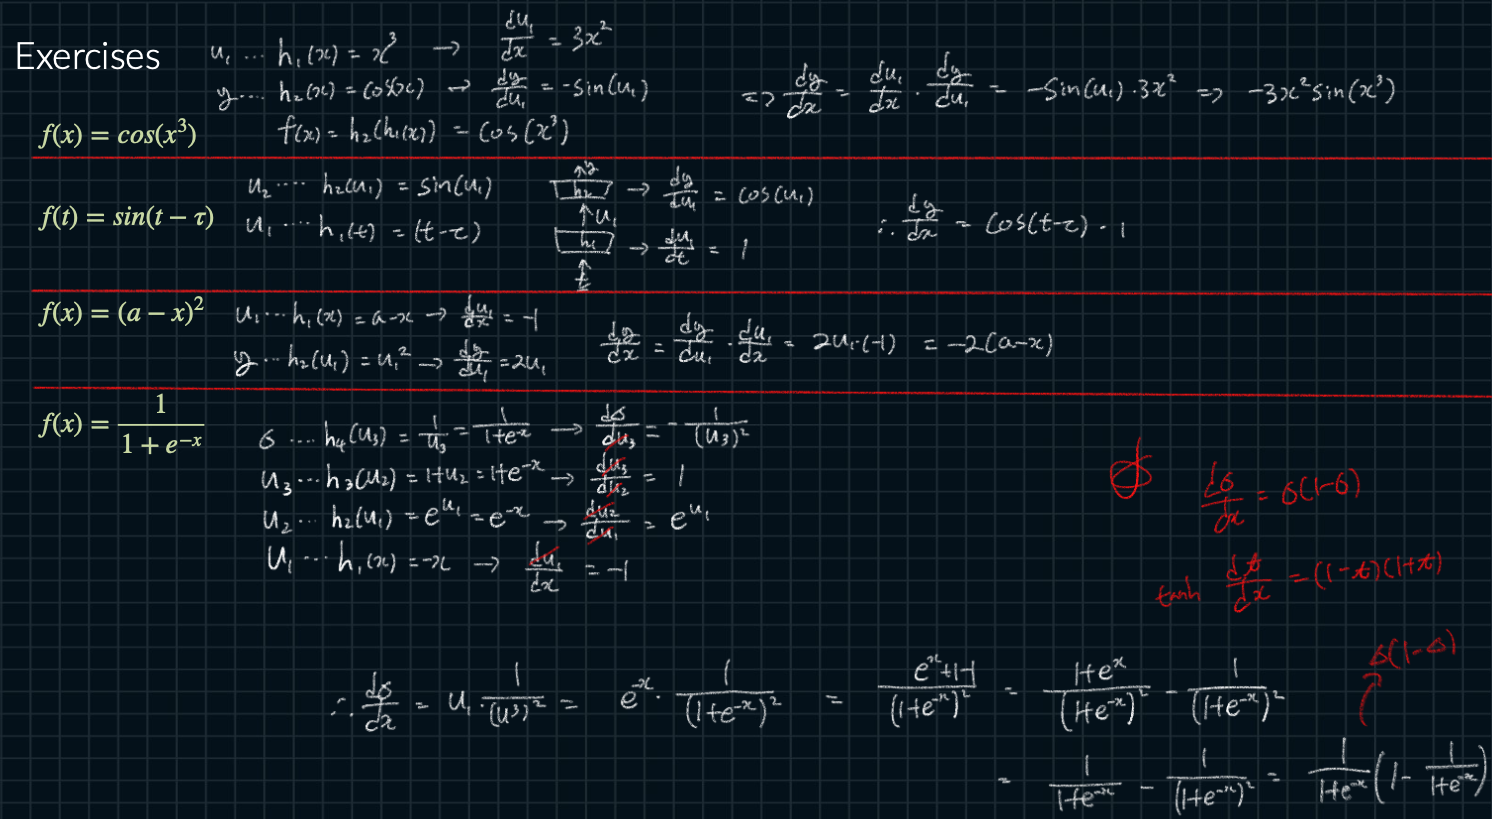 Exercises
u₁ ... h₁(x) = x³ → du₁/dx = 3x²
y ... h₂(x) = cos(x) → dy/du₁ = -sin(u₁)
=> dy/dx = du₁/dx · dy/du₁ = -sin(u₁)·3x² => -3x²sin(x³)
f(x) = cos(x³)
f(x) = h₂(h₁(x)) = cos(x³)
f(t) = sin(t − τ)
u₂ ... h₂(u₁) = sin(u₁)
u₁ ... h₁(t) = (t-τ)
↑y
h₂ → dy/du₁ = cos(u₁)
↑u₁
h₁ → du₁/dt = 1
↑
t
∴ dy/dx = cos(t-τ)·1
f(x) = (a − x)²
u₁ ... h₁(x) = a-x → du₁/dx = -1
y ... h₂(u₁) = u₁² → dy/du₁ = 2u₁
dy/dx = dy/du₁ · du₁/dx = 2u₁·(-1) = -2(a-x)
f(x) = 1/(1 + e⁻ˣ)
σ ... h₄(u₃) = 1/u₃ = 1/(1+e⁻ˣ) → dσ/du₃ = -1/(u₃)²
u₃ ... h₃(u₂) = 1+u₂ = 1+e⁻ˣ → du₃/du₂ = 1
u₂ ... h₂(u₁) = e^u₁ = e⁻ˣ → du₂/du₁ = e^u₁
u₁ ... h₁(x) = -x → du₁/dx = -1
dσ/dx = σ(1-σ)
tanh dt/dx = (1-t)(1+t)
σ(1-σ)
∴ dσ/dx = u₁·1/(u3)² = e⁻ˣ · 1/(1+e⁻ˣ)² = (eˣ+1-1)/(1+e⁻ˣ)² = (1+eˣ)/(1+e⁻ˣ)² - 1/(1+e⁻ˣ)²
= 1/(1+e⁻ˣ) - 1/(1+e⁻ˣ)² = 1/(1+e⁻ˣ) (1 - 1/(1+e⁻ˣ))